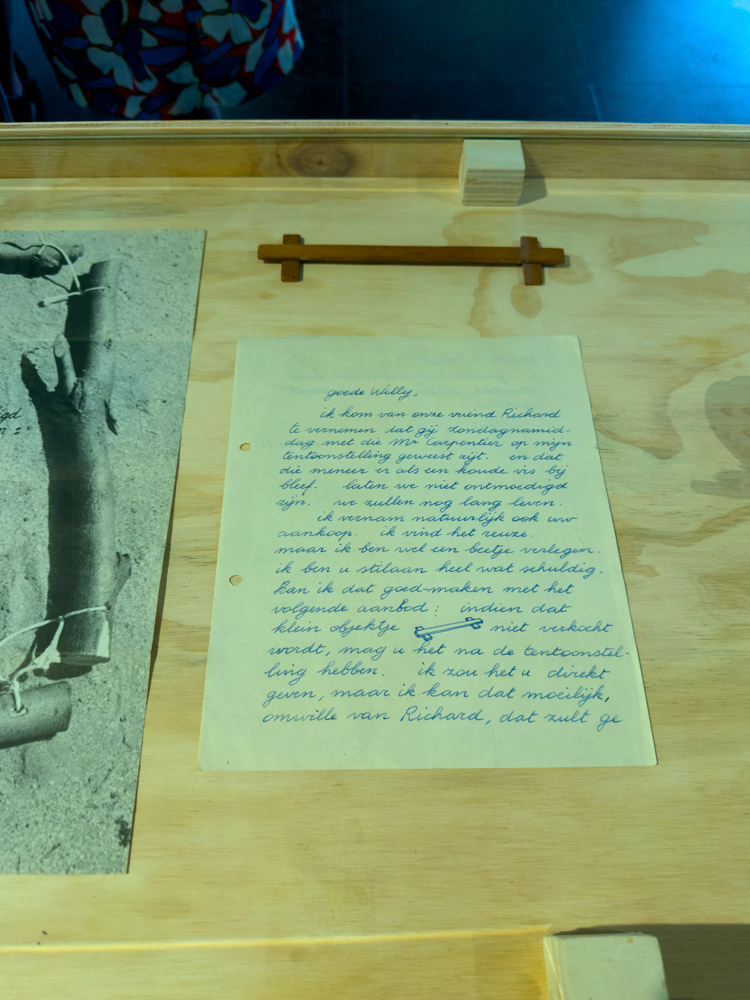 goede Willy,
ik kom van onze vriend Richard
te vernemen dat gij zondagnamid-
dag met die Mr Carpentier op mijn
tentoonstelling geweest zijt. en dat
die meneer er als een koude vis bij
bleef. laten we niet ontmoedigd
zijn. we zullen nog lang leven.
ik vernam natuurlijk ook uw
aankoop. ik vind het reuze.
maar ik ben wel een beetje verlegen.
ik ben u stilaan heel wat schuldig.
kan ik dat goed-maken met het
volgende aanbod: indien dat
klein objektje niet verkocht
wordt, mag u het na de tentoonstel-
ling hebben. ik zou het u direkt
geven, maar ik kan dat moeilijk,
omwille van Richard, dat zult ge